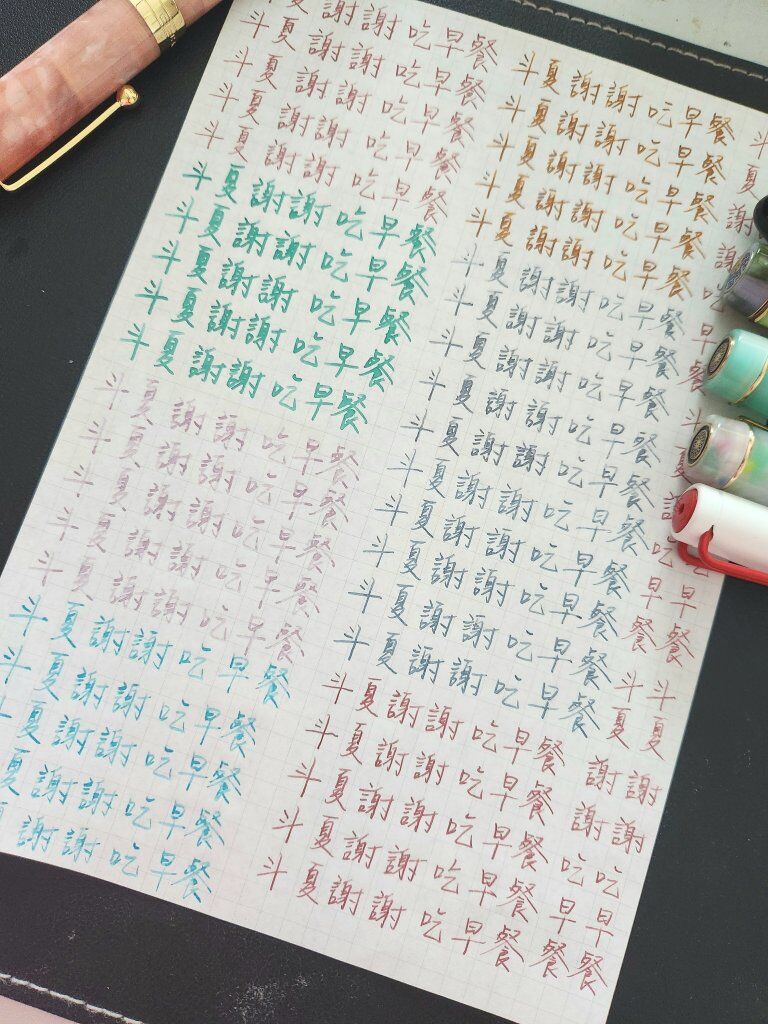 夏謝謝吃早餐
斗夏謝謝吃早餐
斗夏謝謝吃早餐
斗夏謝謝吃早餐
斗夏謝謝吃早餐
斗夏謝謝吃早餐
斗夏謝謝吃早餐
斗夏謝謝吃早餐
斗夏謝謝吃早餐
斗夏謝謝吃早餐
斗夏謝謝吃早餐
斗夏謝謝吃早餐
斗夏謝謝吃早餐
斗夏謝謝吃早餐
斗夏謝謝吃早餐
斗夏謝謝吃早餐
斗夏謝謝吃早餐
斗夏謝謝吃早餐
夏謝謝吃早餐
夏謝謝吃早餐
斗夏謝謝吃早餐
斗夏謝謝吃早餐
斗夏謝謝吃早餐
斗夏謝謝吃早餐
斗夏謝謝吃早餐
斗夏謝謝吃早餐
斗夏謝謝吃早餐
斗夏謝謝吃早餐
斗夏謝謝吃早餐
斗夏謝謝吃早餐
斗夏謝謝吃早餐
斗夏謝謝吃早餐
斗夏謝謝吃早餐
斗夏謝謝吃早餐
斗夏謝謝吃早餐
斗夏謝謝吃早餐
斗夏謝謝吃早餐
斗夏謝謝吃早餐
斗夏謝謝吃早餐
斗夏謝謝吃早餐
斗夏謝謝吃早餐
斗夏謝謝吃早餐
斗夏謝謝吃早餐
斗夏謝謝吃早餐